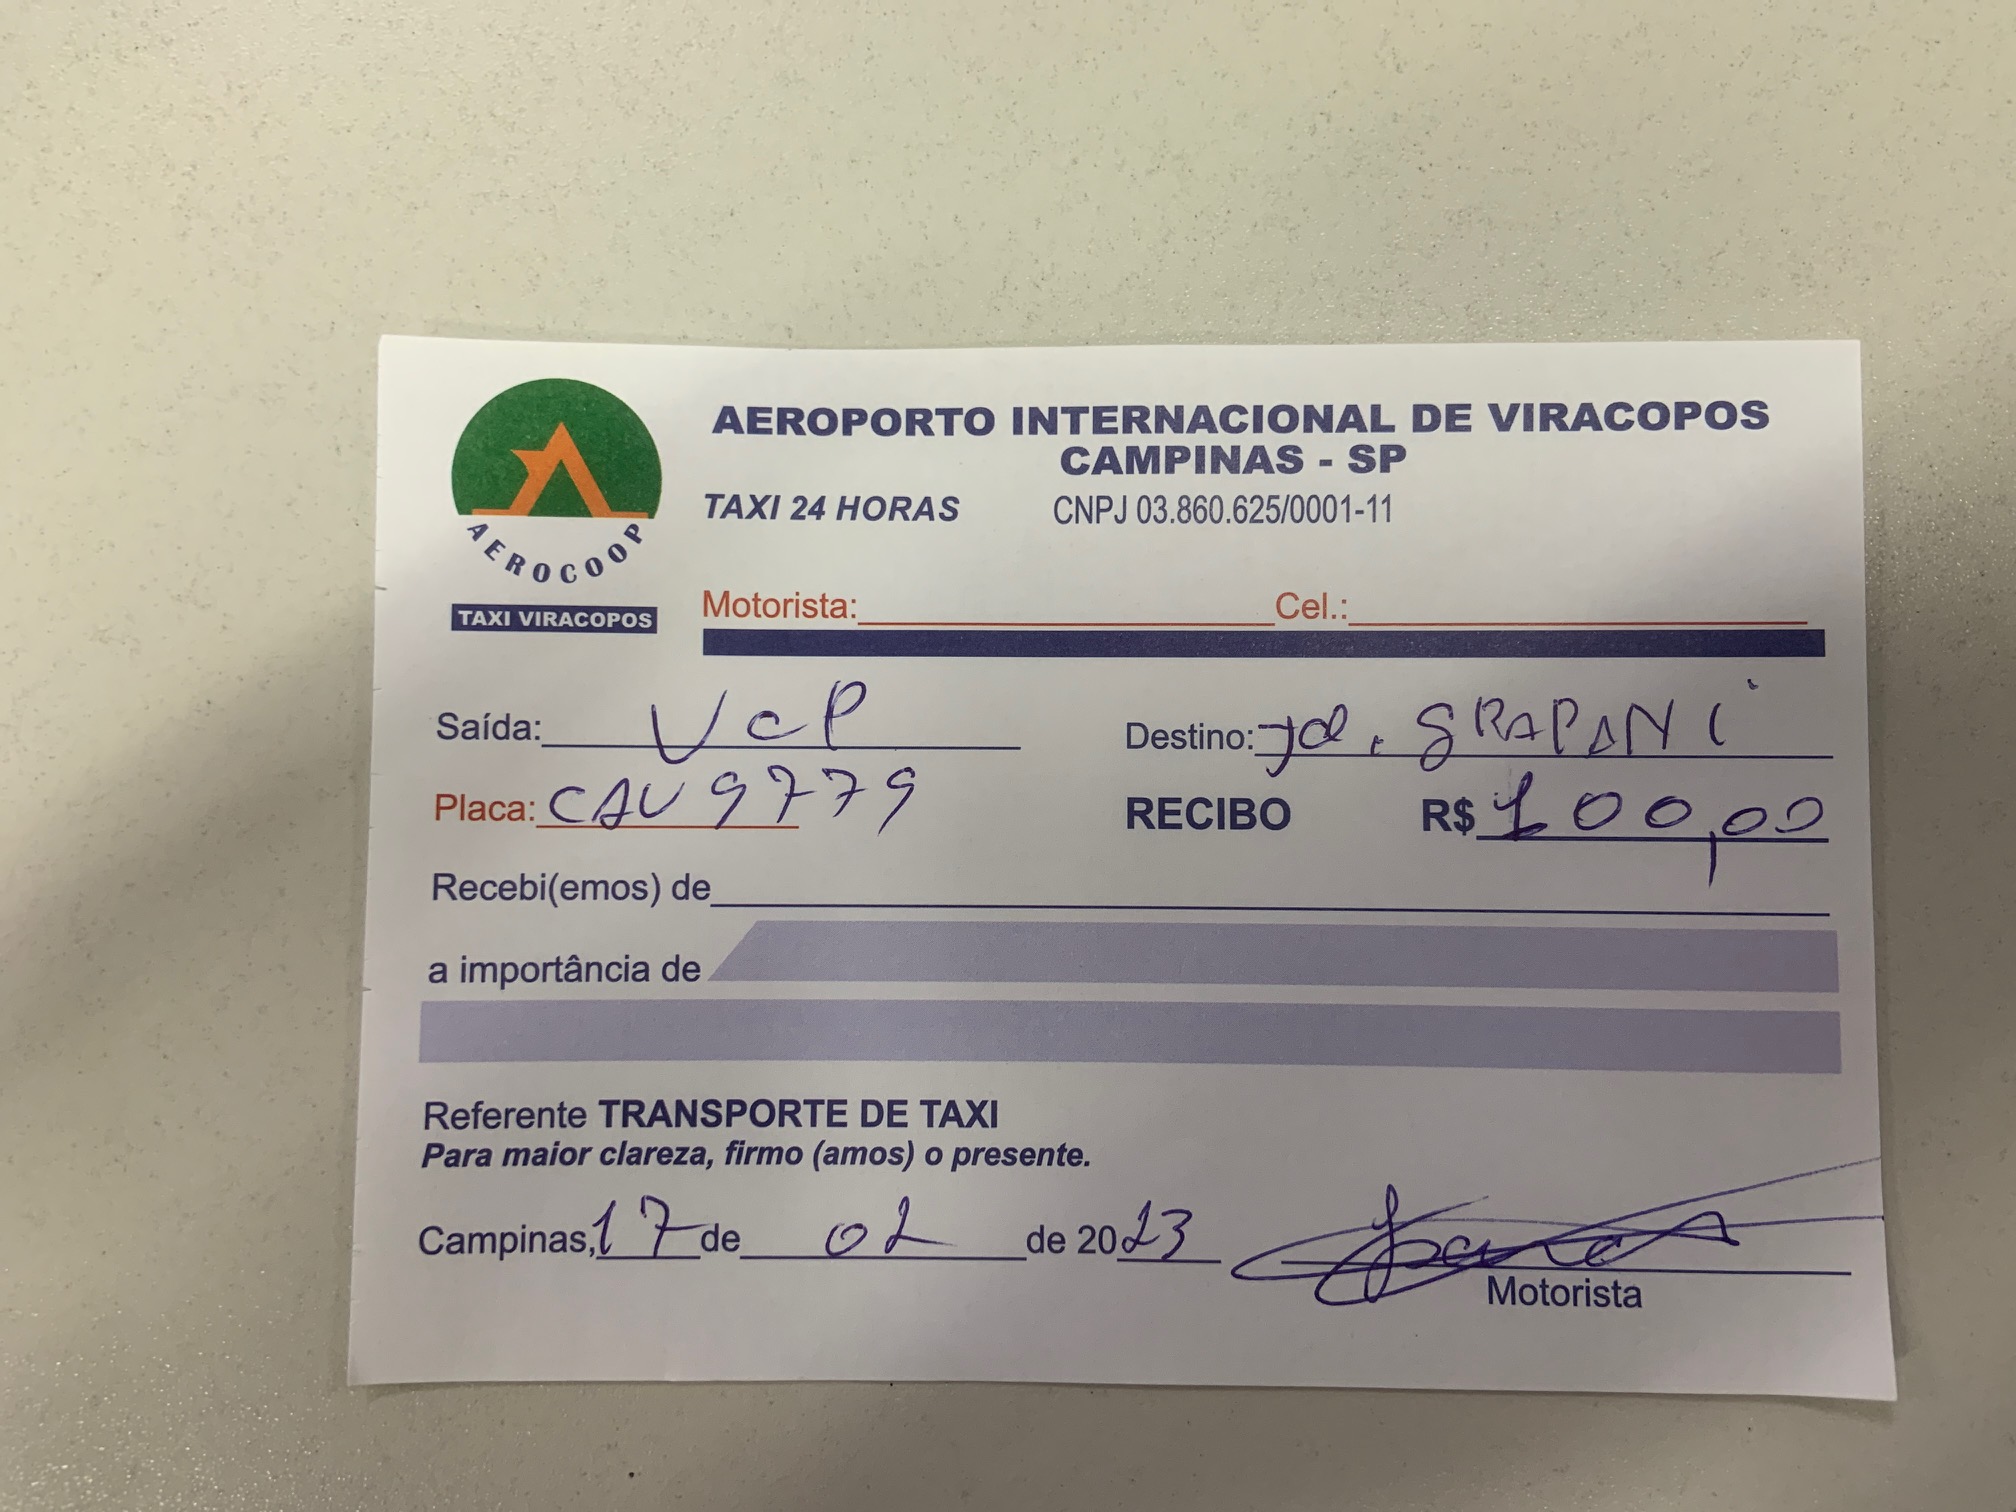 AEROPORTO INTERNACIONAL DE VIRACOPOS
CAMPINAS - SP
TAXI 24 HORAS CNPJ 03.860.625/0001-11
AEROCOOP
TAXI VIRACOPOS
Motorista: Cel.:
Saída: VcP Destino: Jd. GRAPANI
Placa: CAU9779 RECIBO R$ 100,00
Recebi(emos) de
a importância de
Referente TRANSPORTE DE TAXI
Para maior clareza, firmo (amos) o presente.
Campinas, 17 de 02 de 2023
Motorista